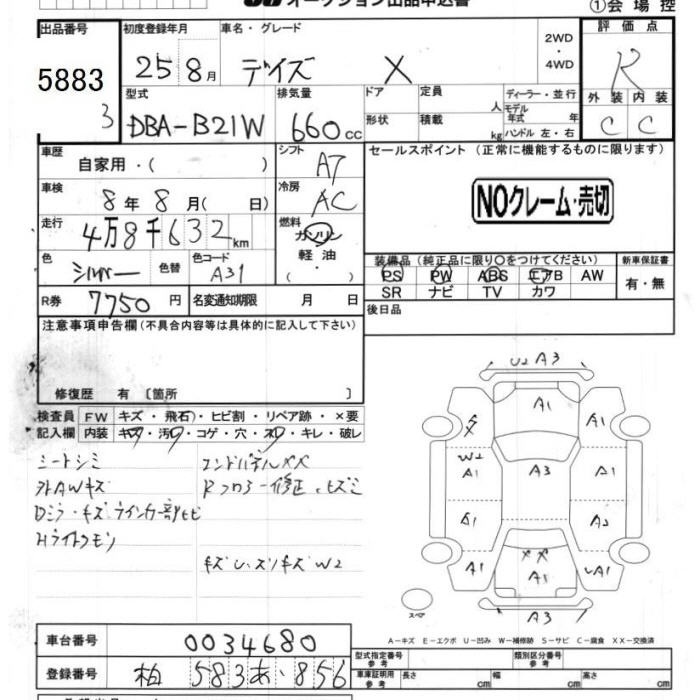 オークション出品申込書
①会場控
出品番号 初度登録年月 車名・グレード 2WD・4WD 評価点
5883 25 8月 デイズ X R
3
型式 排気量 ドア 定員 人 ディーラー・並行 外装 内装
DBA-B21W 660cc 形状 積載 kg モデル年式 年 ハンドル 左・右 C C
車歴 自家用・( ) シフト AT セールスポイント (正常に機能するものに限ります)
車検 8年8月( 日) 冷房 AC NOクレーム・売切
走行 4万8千632km 燃料 ガソリン
軽油
( ・ )
色 シルバー 色替 色コード A31
装備品 (純正品に限り〇をつけてください) 新車保証書
PS PW ABS エアB AW 有・無
SR ナビ TV カワ
R券 7750円 名変通知期限 月 日 後日品
注意事項申告欄 (不具合内容等は具体的に記入して下さい)
修復歴 有〔箇所 〕
検査員 FW キズ・飛石・ヒビ割・リペア跡・×要
記入欄 内装 キズ・汚レ・コゲ・穴・スレ・キレ・破レ
シートシミ エンドパネルXX
外AWキズ Rフロアー修正、ヒズミ
Dミラーキズ ウインカー部ヒビ
Hライトクモリ
キズU、スリキズW2
U2 A3
A1
X A1
W2
A1 A3 A1
A1 A2
XX
A1 A1 UA1
A3
スペア
A-キズ E-エクボ U-凹み W-補修跡 S-サビ C-腐食 XX-交換済
車台番号 0034680
型式指定番号 参考 類別区分番号 参考
登録番号 柏 583 あ・856
車庫証明用 参考 長さ cm 幅 cm 高さ cm